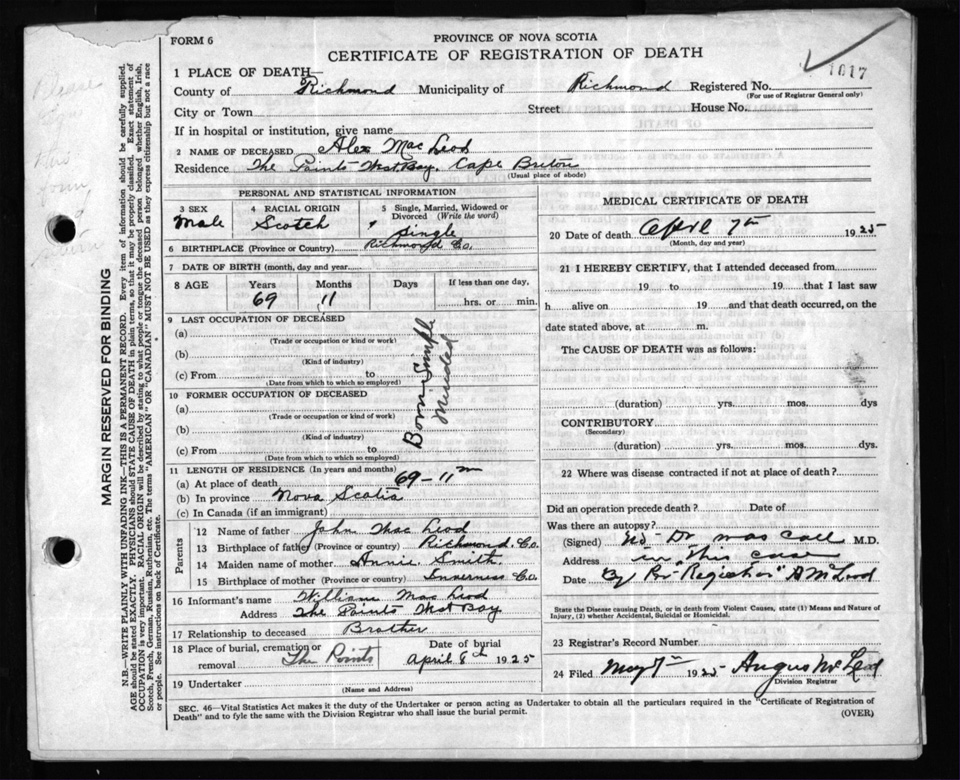 FORM 6
PROVINCE OF NOVA SCOTIA
CERTIFICATE OF REGISTRATION OF DEATH
1017
1 PLACE OF DEATH—
County of Richmond Municipality of Richmond Registered No.
(For use of Registrar General only)
City or Town Street House No.
If in hospital or institution, give name
2 NAME OF DECEASED Alex Mac Leod
Residence The Points West Bay. Cape Breton
(Usual place of abode)
PERSONAL AND STATISTICAL INFORMATION
3 SEX 4 RACIAL ORIGIN 5 Single, Married, Widowed or Divorced (Write the word)
Male Scotch Single
6 BIRTHPLACE (Province or Country) Richmond Co.
7 DATE OF BIRTH (month, day and year)
8 AGE Years Months Days If less than one day,
69 11 hrs. or min.
9 LAST OCCUPATION OF DECEASED
(a)
(Trade or occupation or kind or work)
(b)
(Kind of industry)
(c) From to
(Date from which to which so employed)
10 FORMER OCCUPATION OF DECEASED
(a)
(Trade or occupation or kind of work)
(b)
(Kind of industry)
(c) From to
(Date from which to which so employed)
Born Simple
Minded
11 LENGTH OF RESIDENCE (In years and months)
(a) At place of death 69-11m
(b) In province Nova Scotia
(c) In Canada (if an immigrant)
Parents
12 Name of father John Mac Leod
13 Birthplace of father (Province or country) Richmond. Co.
14 Maiden name of mother Annie Smith
15 Birthplace of mother (Province or country) Inverness Co.
16 Informant's name William Mac Leod
Address The Points West Bay
17 Relationship to deceased Brother
18 Place of burial, cremation or removal The Points
Date of burial
April 8th 1925
19 Undertaker
(Name and Address)
MEDICAL CERTIFICATE OF DEATH
20 Date of death April 7th 1925
(Month, day and year)
21 I HEREBY CERTIFY, that I attended deceased from
19 to 19 that I last saw
h alive on 19 and that death occurred, on the
date stated above, at m.
The CAUSE OF DEATH was as follows:
(duration) yrs. mos. dys
CONTRIBUTORY
(Secondary)
(duration) yrs. mos. dys.
22 Where was disease contracted if not at place of death?
Did an operation precede death? Date of
Was there an autopsy?
(Signed) No Dr was call M.D.
Address in this case
Date By
State the Disease causing Death, or in death from Violent Causes, state (1) Means and Nature of Injury, (2) whether Accidental, Suicidal or Homicidal.
23 Registrar's Record Number
24 Filed May 7th 1925 Angus McLeod
Division Registrar
SEC. 46—Vital Statistics Act makes it the duty of the Undertaker or person acting as Undertaker to obtain all the particulars required in the "Certificate of Registration of
Death" and to fyle the same with the Division Registrar who shall issue the burial permit.
(OVER)
MARGIN RESERVED FOR BINDING
N.B.—WRITE PLAINLY WITH UNFADING INK—THIS IS A PERMANENT RECORD. Every item of information should be carefully supplied.
AGE should be stated EXACTLY. PHYSICIANS should STATE CAUSE OF DEATH in plain terms, so that it may be properly classified. Exact statement of
OCCUPATION is very important. RACIAL ORIGIN will be described by stating to what people or tongue the deceased person belonged, whether English, Irish,
Scotch, French, German, Russian, Ruthenian, etc. The terms "AMERICAN" or "CANADIAN" MUST NOT BE USED as they express citizenship but not a race
or people. See instructions on back of Certificate.